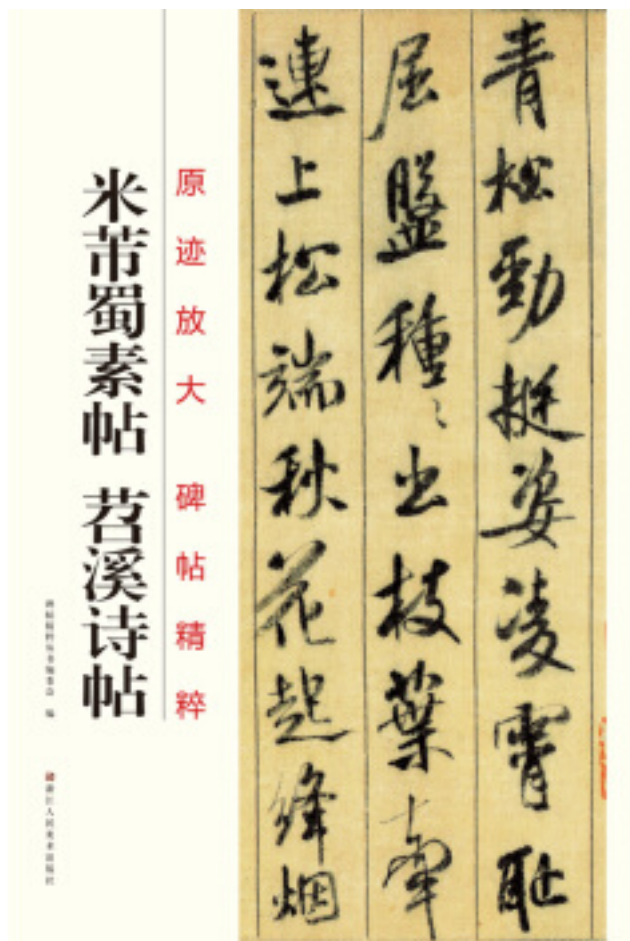 青松勁挺姿凌霄耻
屈盤種〻出枝葉牽
連上松端秋花起絳烟
原迹放大 碑帖精粹
米芾蜀素帖 苕溪诗帖
浙江人民美术出版社